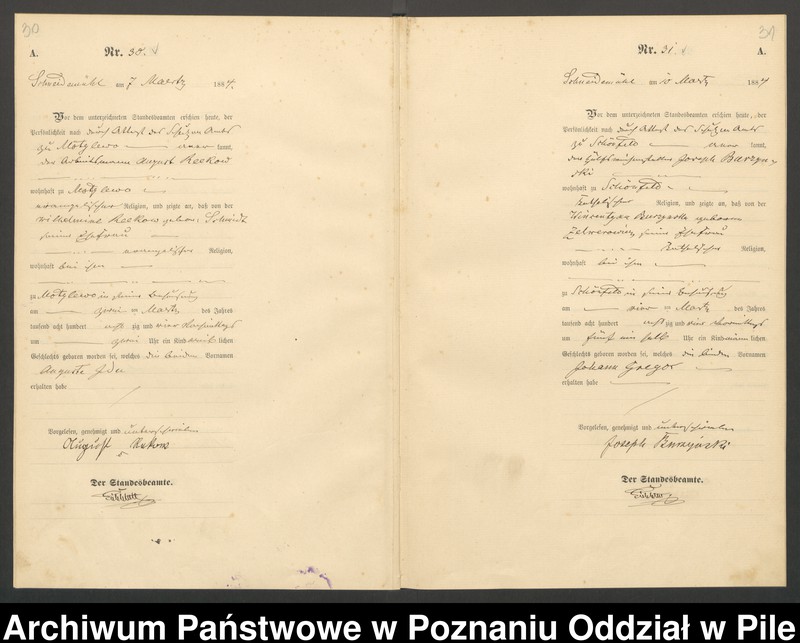 30
A.
Nr. 30.
Schneidemühl am 7 Maertz 1884.
Vor dem unterzeichneten Standesbeamten erschien heute, der
Persönlichkeit nach durch Attest des Schulzen Amts
zu Motylewo kannt,
der Arbeitsmann August Reekow
wohnhaft zu Motylewo
evangelischer Religion, und zeigte an, daß von der
Wilhelmine Reekow geborne Schmidt
seine Ehefrau
evangelischer Religion,
wohnhaft bei ihm
zu Motylewo in seine Behausung
am zwei ten Maertz des Jahres
tausend acht hundert acht zig und vier Nachmittags
um zwei Uhr ein Kind weib lichen
Geschlechts geboren worden sei, welches die beiden Vornamen
Auguste Ida
erhalten habe
Vorgelesen, genehmigt und unterschrieben
August Rekow
Der Standesbeamte.
31
Nr. 31.
A.
Schneidemühl am 10 Martz 1884
Vor dem unterzeichneten Standesbeamten erschien heute, der
Persönlichkeit nach durch Attest des Schulzen Amts
zu Schönfeld kannt,
der Joseph Burzyn-
ski
wohnhaft zu Schönfeld
katholischer Religion, und zeigte an, daß von der
Burzynska geboren
seine Ehefrau
katholischer Religion,
wohnhaft bei ihm
zu Schönfeld in seine Behausung
am vier ten Martz des Jahres
tausend acht hundert acht zig und vier Vormittags
um fünf ein halb Uhr ein Kind männ lichen
Geschlechts geboren worden sei, welches die beiden Vornamen
Johann Gregor
erhalten habe
Vorgelesen, genehmigt und unterschrieben
Joseph Burzyński
Der Standesbeamte.
Archiwum Państwowe w Poznaniu Oddział w Pile